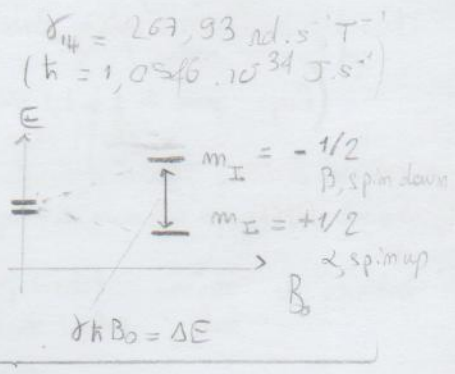 γ₁₄ = 267,93 rd.s⁻¹ T⁻¹
(ħ = 1,0546.10⁻³⁴ J.s⁻¹)
E
m_I = - 1/2
β, spin down
m_I = +1/2
α, spin up
B₀
γħB₀ = ΔE